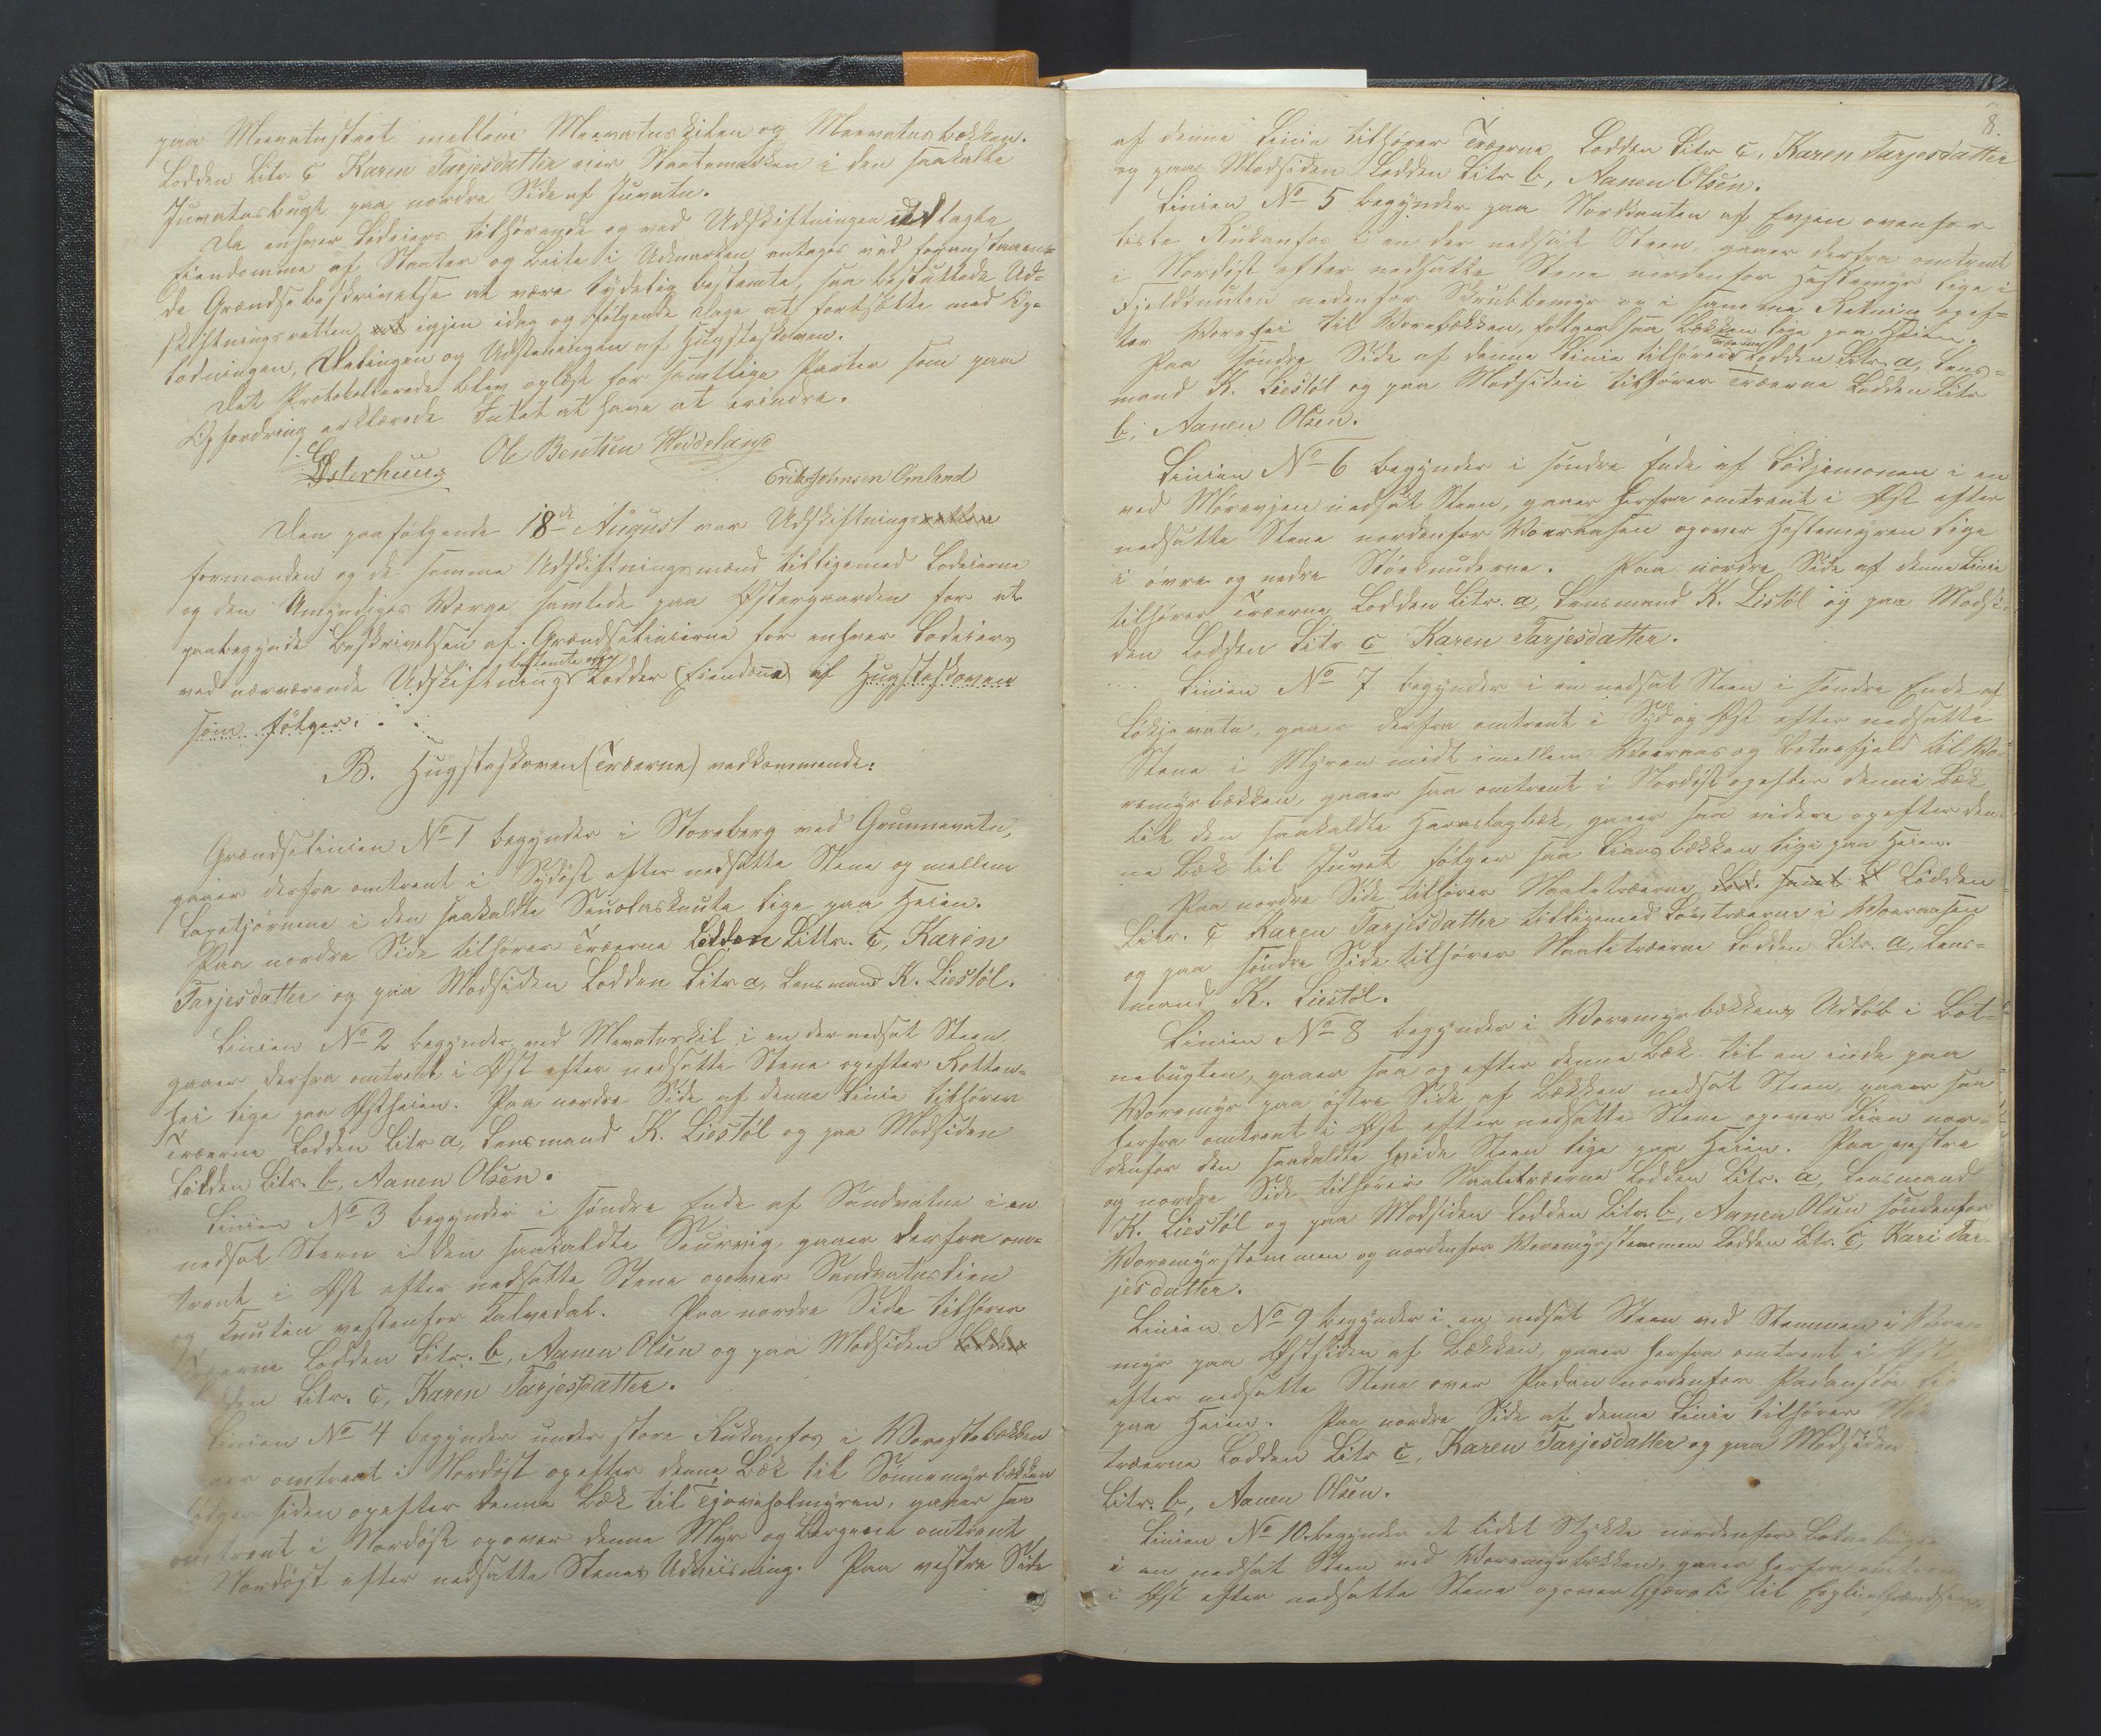 paa Meevatnstræet mellem Meevatnskilen og Meevatnsbækken.
Lodden Litr c Karen Tarjesdatter eier Slaatemarken i den saakaldte
Juvatnsbugt paa nordre Side af Juvatn.
Da enhver Lodeiers tilhørende og ved Udskiftningen udlagte
Eiendomme af Slaater og Beite i Udmarken antages ved foranstaaen-
de Grændsebeskrivelse at være tydelig bestemte, saa besluttede Ud-
skiftningsretten igjen idag og følgende Dage at fortsætte med Op-
lodningen, Delingen og Udsteningen af Hugsteskoven.
Det Protokollerede blev oplæst for samtlige Parter som paa
Opfordring erklærede Intet at have at erindre.
Osterhuus Ole Bentsen Heddeland
Erik Johnsen Omland
Den paafølgende 18de August var Udskiftningsretten
formanden og de samme Udskiftningsmænd tilligemed Lodeierne
og den Umyndiges Værge samlede paa Østergaarden for at
paabegynde Beskrivelsen af Grændselinierne for enhver Lodeiers
ved nærværende Udskiftning bestemte Lodder (Eiendome) af Hugsteskoven
som følger:
B. Hugsteskoven (Træerne) vedkommende:
Grændselinien No 1 begynder i Storeberg ved Grunnevatn,
gaaer derfra omtrent i Sydøst efter nedsatte Stene og mellem
Langtjørnene i den saakaldte Senolasknute lige paa Heien.
Paa nordre Side tilhører Træerne Lodden Littr. c, Karen
Tarjesdatter og paa Modsiden Lodden Litr a, Lensmand K. Liestøl.
Linien No 2 begynder ved Mevatnskil i en der nedsat Steen,
gaaer derfra omtrent i Øst efter nedsatte Stene opefter Rotten-
hei lige paa Østheien. Paa nordre Side af denne Linie tilhører
Træerne Lodden Litr a, Lensmand K. Liestøl og paa Modsiden
Lodden Litr. b, Aanen Olsen.
Linien No 3 begynder i søndre Ende af Sandvatne i en
nedsat Steen i den saakaldte Seurvig, gaaer derfra om-
trent i Øst efter nedsatte Stene opover Sandvatnslien
og Knuten vestenfor Kalvedal. Paa nordre Side tilhører
Træerne Lodden Litr. b, Aanen Olsen og paa Modsiden Lodden
Lodden Litr. c, Karen Tarjesdatter.
Linien No 4 begynder under store Rukanfos i Vorestebækken
gaaer omtrent i Nordøst opefter denne Bæk til Sønnemyrbækken
følger siden opefter denne Bæk til Tjoveholmyren, gaaer saa
omtrent i Nordøst opover denne Myr og Bergene omtrent
i Nordøst efter nedsatte Stenes Udviisning. Paa vestre Side
8.
af denne Linie tilhører Træerne Lodden Litr c, Karen Tarjesdatter
og paa Modsiden Lodden Litr b, Aanen Olsen.
Linien No 5 begynder paa Nordkanten af Evjen ovenfor
liste Rukanfos i en der nedsat Steen, gaaer derfra omtrent
i Nordøst efter nedsatte Stene nordenfor Hestemyr lige i
Fjeldknuten nedenfor Skrubbemyr og i samme Retning opef-
ter Vorehei til Vorebækken, følger saa Bækken lige paa Heien.
Paa søndre Side af denne Linie tilhører Træerne Lodden Litr. a, Lens-
mand K. Liestøl og paa Modsiden tilhører Træerne Lodden Litr
b, Aanen Olsen.
Linien No 6 begynder i søndre Ende af Løkjemonen i en
ved Mørevjen nedsat Steen, gaaer herfra omtrent i Øst efter
nedsatte Stene nordenfor Voreaasen opover Hestemyren lige
i øvre og nedre Størknuderne. Paa nordre Side af denne Linie
tilhører Træerne Lodden Litr. a, Lensmand K. Listøl og paa Modsi-
den Lodden Litr c Karen Tarjesdatter.
Linien No 7 begynder i en nedsat Steen i søndre Ende af
Løkjevatn, gaaer derfra omtrent i Syd og Øst efter nedsatte
Stene i Myren midt imellem Voreaas og Botnefjeld til Vo-
remyrbækken, gaaer saa omtrent i Nordøst opefter denne Bæk
til den saakaldte Haraslagbæk, gaaer saa videre opefter den-
ne Bæk til Juvet følger saa Liansbækken lige paa Heien.
Paa nordre Side tilhører Naaletræerne Lodden
Litr. c Karen Tarjesdatter tilligemed Løvtræerne i Voreaasen
og paa søndre Side tilhører Naaletræerne Lodden Litr. a, Lens-
mand K. Liestøl.
Linien No 8 begynder i Voremyrbækkens Udløb i Bot-
nebugten, gaaer saa op efter denne Bæk til en inde paa
Voremyr paa østre Side af Bækken nedsat Steen, gaaer saa
herfra omtrent i Øst efter nedsatte Stene opover Lien nor-
denfor den saakaldte hvide Steen lige paa Heien. Paa vestre
og nordre Side tilhører Naaletræerne Lodden Litr. a, Lensmand
K. Liestøl og paa Modsiden Lodden Litr. b, Aanen Olsen søndenfor
Voremyrstemmen og nordenfor Voremyrstemmen Lodden Litr. c, Kari Tar-
jesdatter.
Linien No 9 begynder i en nedsat Steen ved Stemmen i Vore-
myr paa Østsiden af Bækken, gaaer herfra omtrent i Øst
efter nedsatte Stene over Padan nordenfor
paa Heien. Paa nordre Side af denne Linie tilhører
træerne Lodden Litr c, Karen Tarjesdatter og paa Modsiden
Litr. b, Aanen Olsen.
Linien No 10 begynder et lidet Stykke nordenfor
i en nedsat Steen ved Voremyrbækken, gaaer herfra omtrent
i Øst efter nedsatte Stene opover til